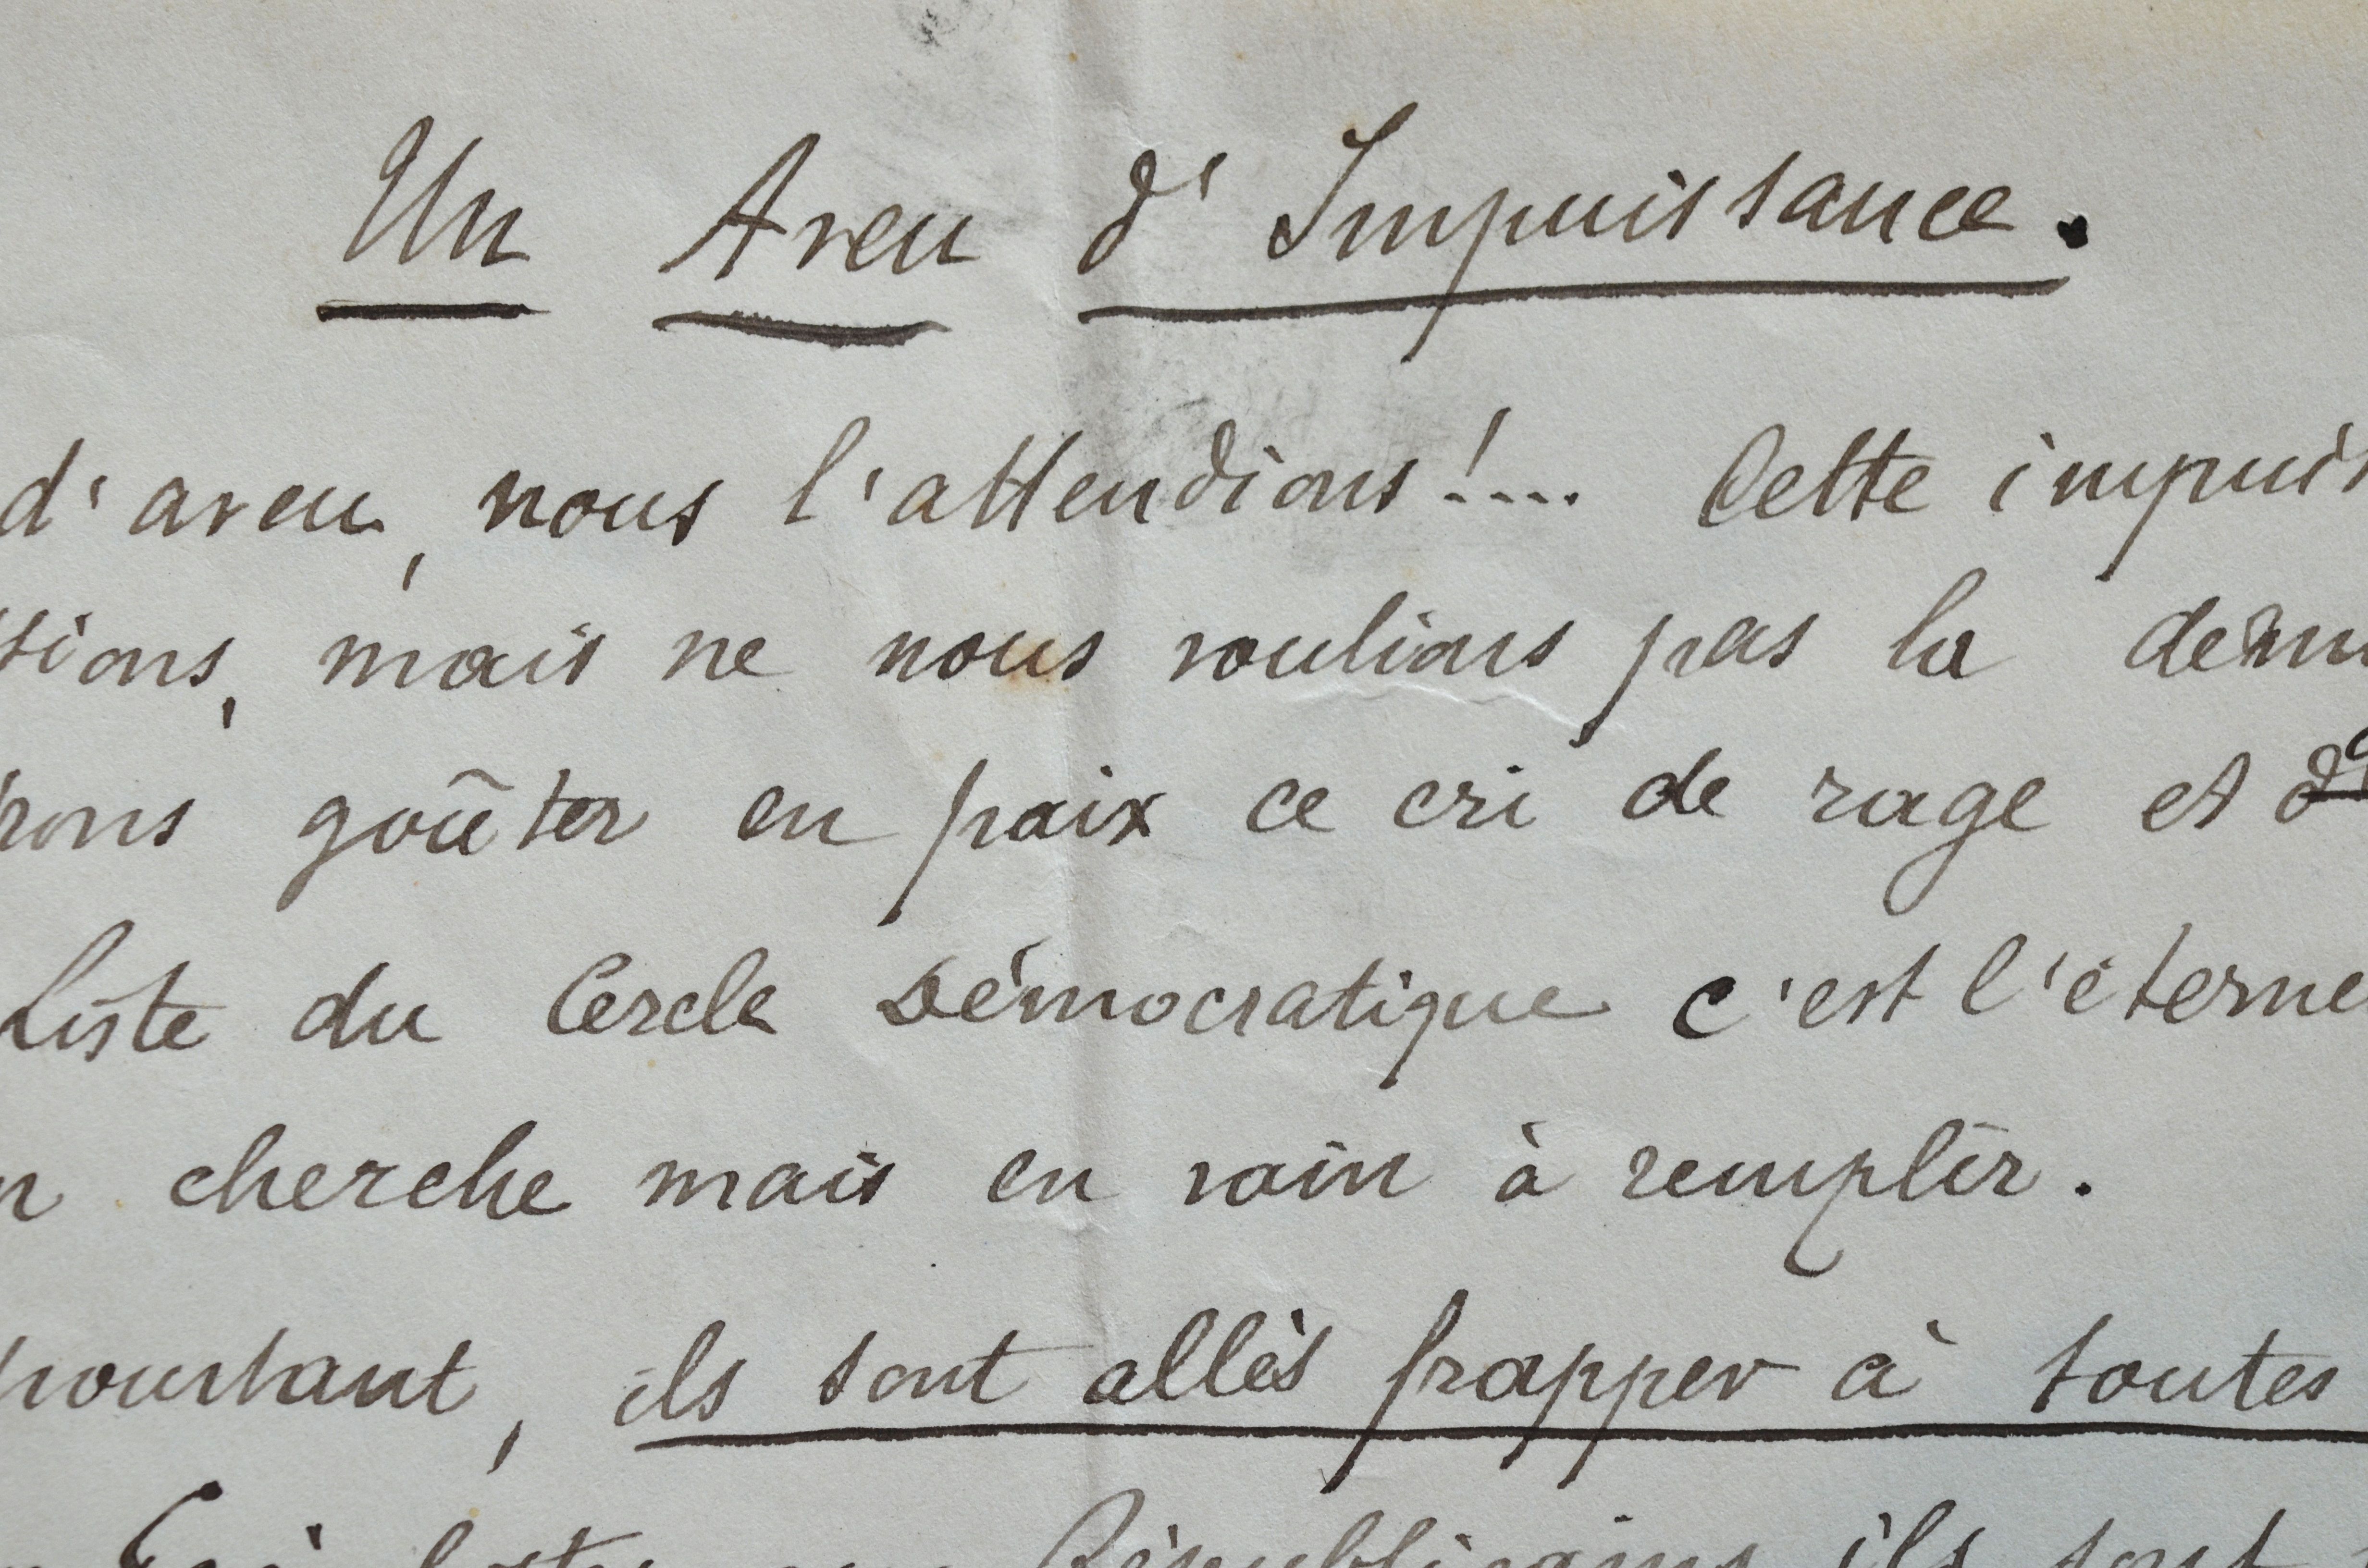 Un Aveu d'Impuissance.
d'aveu, nous l'attendions!.... Cette impuis
tions, mais ne nous voulions pas la
rons goûter en paix ce cri de rage et
Liste du Cercle Démocratique c'est l'éterne
n cherche mais en vain à remplir.
pourtant, ils sont allés frapper à toutes
Républicains ils sont